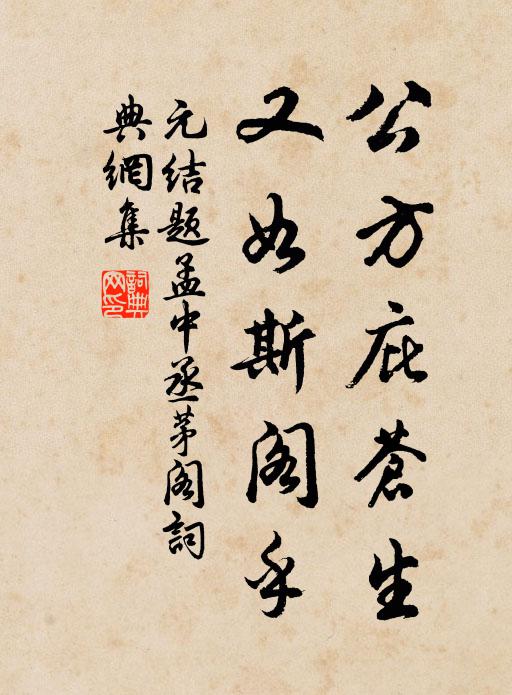 公方庇蒼生
又如斯阁乎
元结题孟中丞茅阁詞
典網集
詞典网印